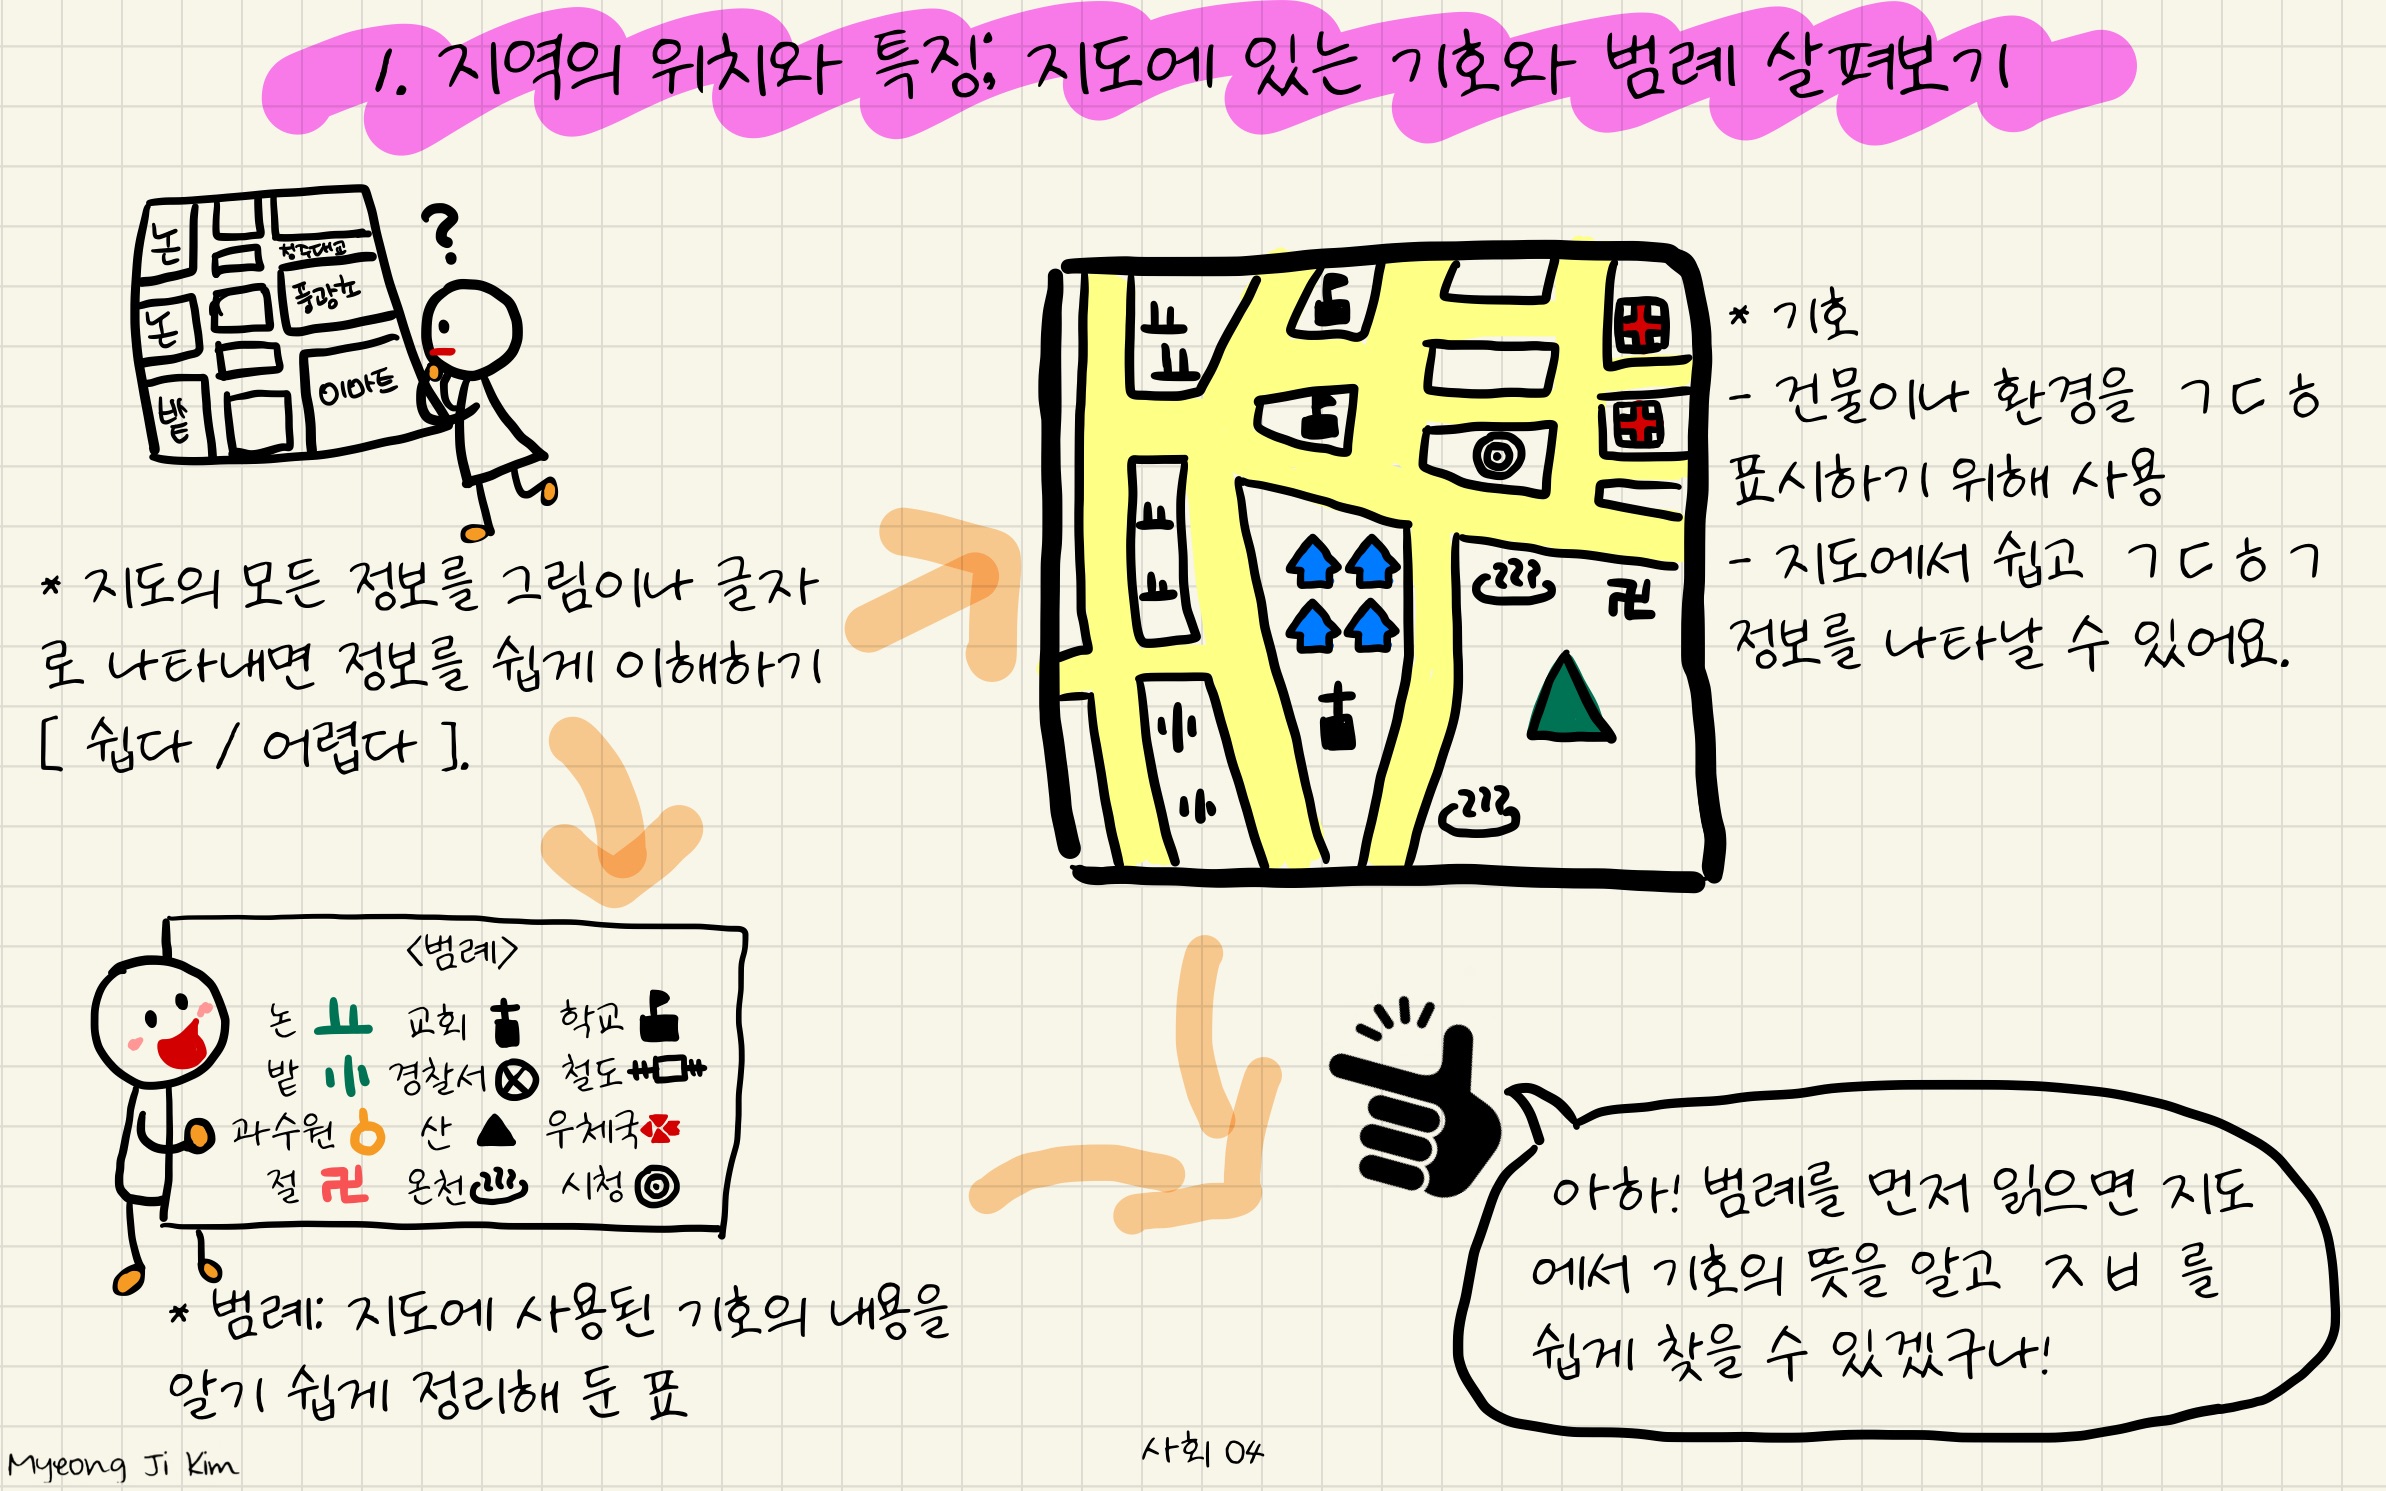 1. 지역의 위치와 특징; 지도에 있는 기호와 범례 살펴보기
논
논
밭
청주대교
풍광노
이마트
?
* 지도의 모든 정보를 그림이나 글자
로 나타내면 정보를 쉽게 이해하기
[ 쉽다 / 어렵다 ].
* 기호
- 건물이나 환경을 ㄱㄷㅎ
표시하기 위해 사용
- 지도에서 쉽고 ㄱㄷㅎㄱ
정보를 나타낼 수 있어요.
<범례>
논 교회 학교
밭 경찰서 철도
과수원 산 우체국
절 온천 시청
* 범례: 지도에 사용된 기호의 내용을
알기 쉽게 정리해 둔 표
아하! 범례를 먼저 읽으면 지도
에서 기호의 뜻을 알고 ㅈㅂ를
쉽게 찾을 수 있겠구나!
사회 04
Myeong Ji Kim